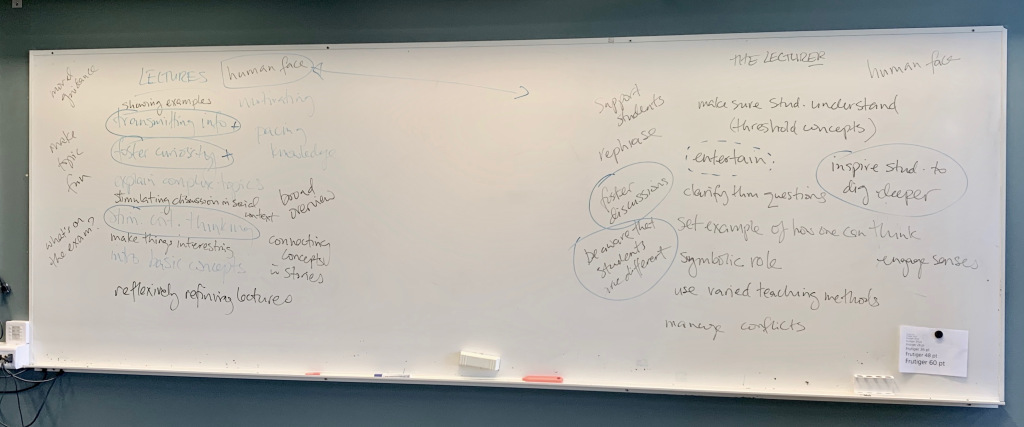 LECTURES
human face
guidance
showing examples
transmitting info +
foster curiosity +
explain complex topics
stimulating discussion in social
context
stim. crit. thinking
make things interesting
intro basic concepts
reflexively refining lectures
motivating
pacing
knowledge
broad
overview
connecting
concepts
in stories
make
topic
fun
what's on
the exam?
THE LECTURER
human face
support
students
rephrase
foster
discussions
be aware that
students
are different
make sure stud. understand
(threshold concepts)
entertain
inspire stud. to
dig deeper
clarify thru questions
set example of how one can think
symbolic role
engage senses
use varied teaching methods
manage conflicts
Frutiger 48 pt
Frutiger 60 pt